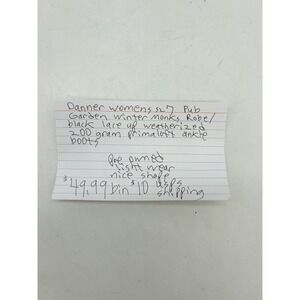 Danner womens sz 7 Pub
Garden winter monks Robe/
black lace up weatherized
200 gram primaloft ankle
boots
pre owned
light wear
nice shape
$49.99 bin $10 usps
shipping